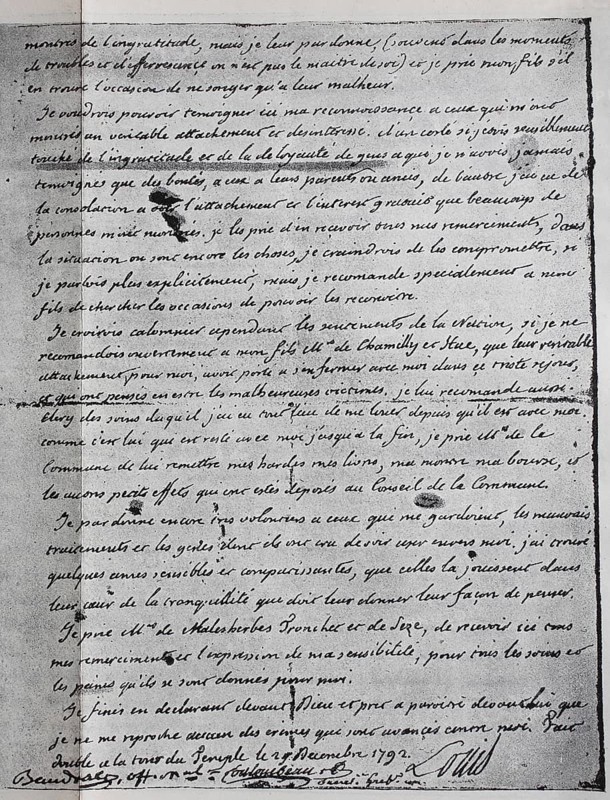 montrés de l'ingratitude, mais je leur pardonne, (souvent dans les moments
de troubles et d'effervescence on n'est pas le maitre de soi) et je prie mon fils s'il
en trouve l'occasion de ne songer qu'a leur malheur.
Je voudrois pouvoir temoigner ici ma reconnoissance a ceux qui m'ont
montrés un veritable attachement et desinteressé. d'un coté si j'etois sensiblement
touché de l'ingratitude et de la deloyauté de gens a qui je n'avois jamais
temoignés que des bontés, a eux a leurs parents ou amis, de l'autre j'ai eu de
la consolation a voir l'attachement et l'interest gratuit que beaucoup de
personnes m'ont montrés. je les prie d'en recevoir tous mes remerciments, dans
la situation ou sont encore les choses, je craindrois de les compromettre, si
je parlois plus explicitement, mais je recomande specialement a mon
fils de chercher les occasions de pouvoir les reconoitre.
Je croirois calomnier cependant les sentiments de la Nation, si je ne
recomandois ouvertement a mon fils Mrs de Chamilly et Hue, que leur veritable
attachement pour moi, avoit porté a s'enfermer avec moi dans ce triste sejour,
et qui ont pensés en estre les malheureuses victimes. je lui recomande aussi
Clery des soins duquel j'ai eu tout lieu de me louer depuis qu'il est avec moi.
comme c'est lui qui est resté avec moi jusqu'a la fin, je prie Mrs de la
Commune de lui remettre mes hardes mes livres, ma montre ma bourse, et
les autres petits effets qui ont estés déposés au Conseil de la Commune.
Je pardonne encore tres volontiers a ceux que me gardoient, les mauvais
traitements et les gesnes dont ils ont cru devoir user envers moi. j'ai trouvé
quelques ames sensibles et compatissantes, que celles la jouissent dans
leur cœur de la tranquillité que doit leur donner leur façon de penser.
Je prie Mrs de Malesherbes Tronchet et de Seze, de recevoir ici tous
mes remerciments et l'expression de ma sensibilité, pour tous les soins et
les peines qu'ils se sont donnés pour moi.
Je finis en declarant devant Dieu et pret a paroitre devant lui que
je ne me reproche aucun des crimes que sont avancés contre moi. Fait
double a la tour du Temple le 25 Decembre 1792.
Louis
Baudrais, off. mal Coulombeau